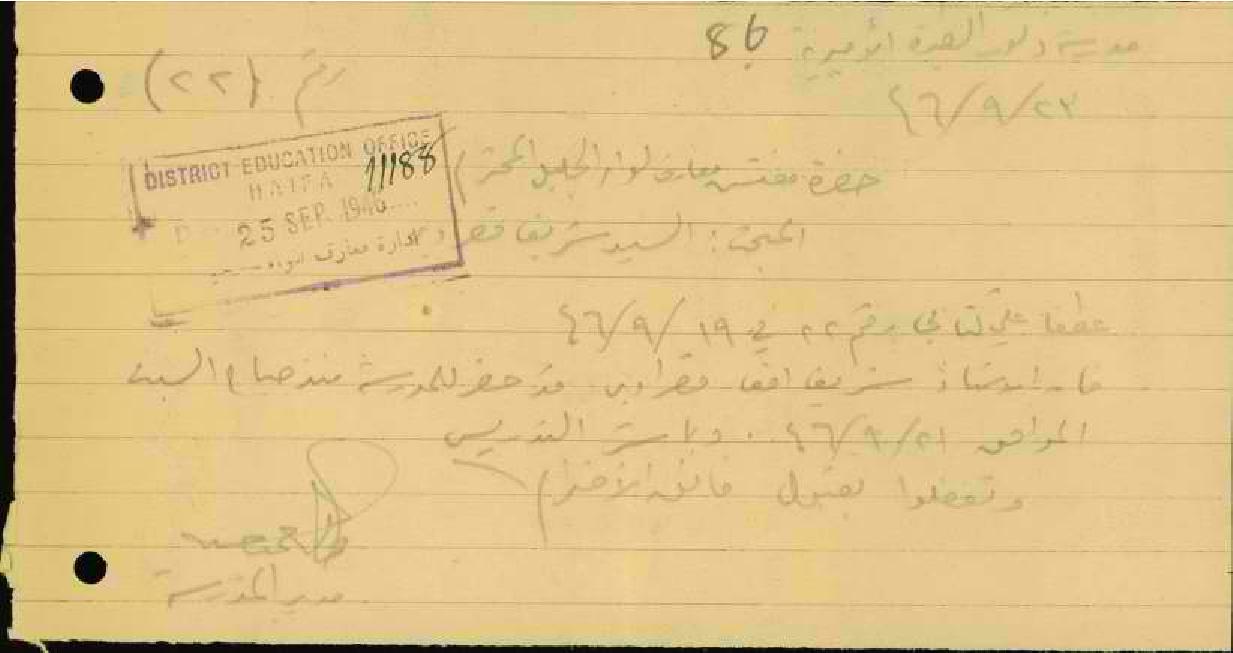 مدرسة دلور الصبرة الأميرية 86
٤٦/٩/٢٣
رقم (٢٢)
DISTRICT EDUCATION OFFICE
HAIFA 11188
25 SEP. 1946
ادارة معارف لواء
حضرة مفتش معارف لواء الجليل المحترم
المبحث: السيد شريف قصراوي
عطفا على كتابي رقم ٢٢ في ١٩/٩/٤٦
فان الاستاذ شريف افندي قصراوي قد حضر للمدرسة منذ صباح السبت
الموافق ٤٦/٩/٢١ وباشر التدريس
وتفضلوا بقبول فائق الاحترام
مدير المدرسة